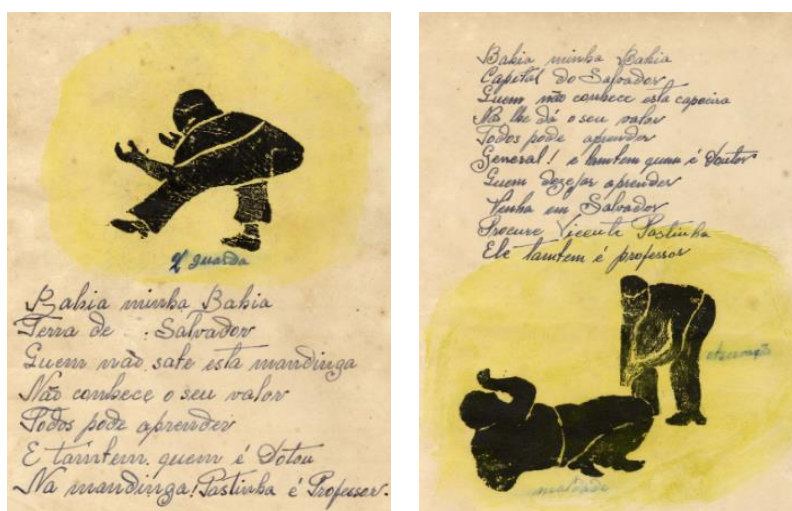 guarda
Bahia minha Bahia
Terra de Salvador
Quem não sabe esta mandinga
Não conhece o seu valor
Todos pode aprender
E tambem quem é Dotou
Na mandinga! Pastinha é Professor.
Bahia minha Bahia
Capital do Salvador
Quem não conhece esta capoeira
Não lhe dá o seu valor
Todos pode aprender
General! e tambem quem é Doutor
Quem dezejar aprender
Venha em Salvador
Procure Vicente Pastinha
Ele tambem é professor
maldade